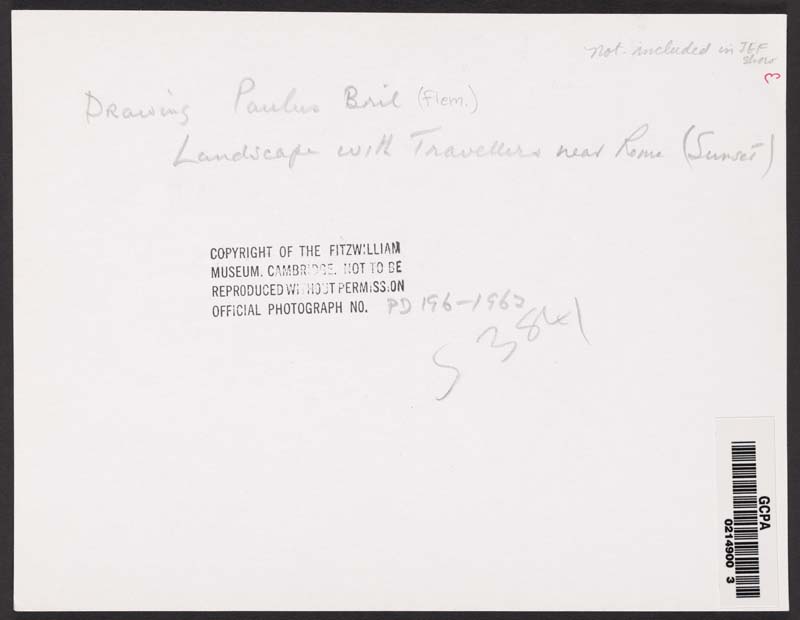 not included in JEF
show
3
Drawing Paulus Bril (Flem.)
Landscape with Travellers near Rome (Sunset)
COPYRIGHT OF THE FITZWILLIAM
MUSEUM. CAMBRIDGE. NOT TO BE
REPRODUCED WITHOUT PERMISSION
OFFICIAL PHOTOGRAPH NO. PD 196-1962
S 3841
GCPA
0214900 3